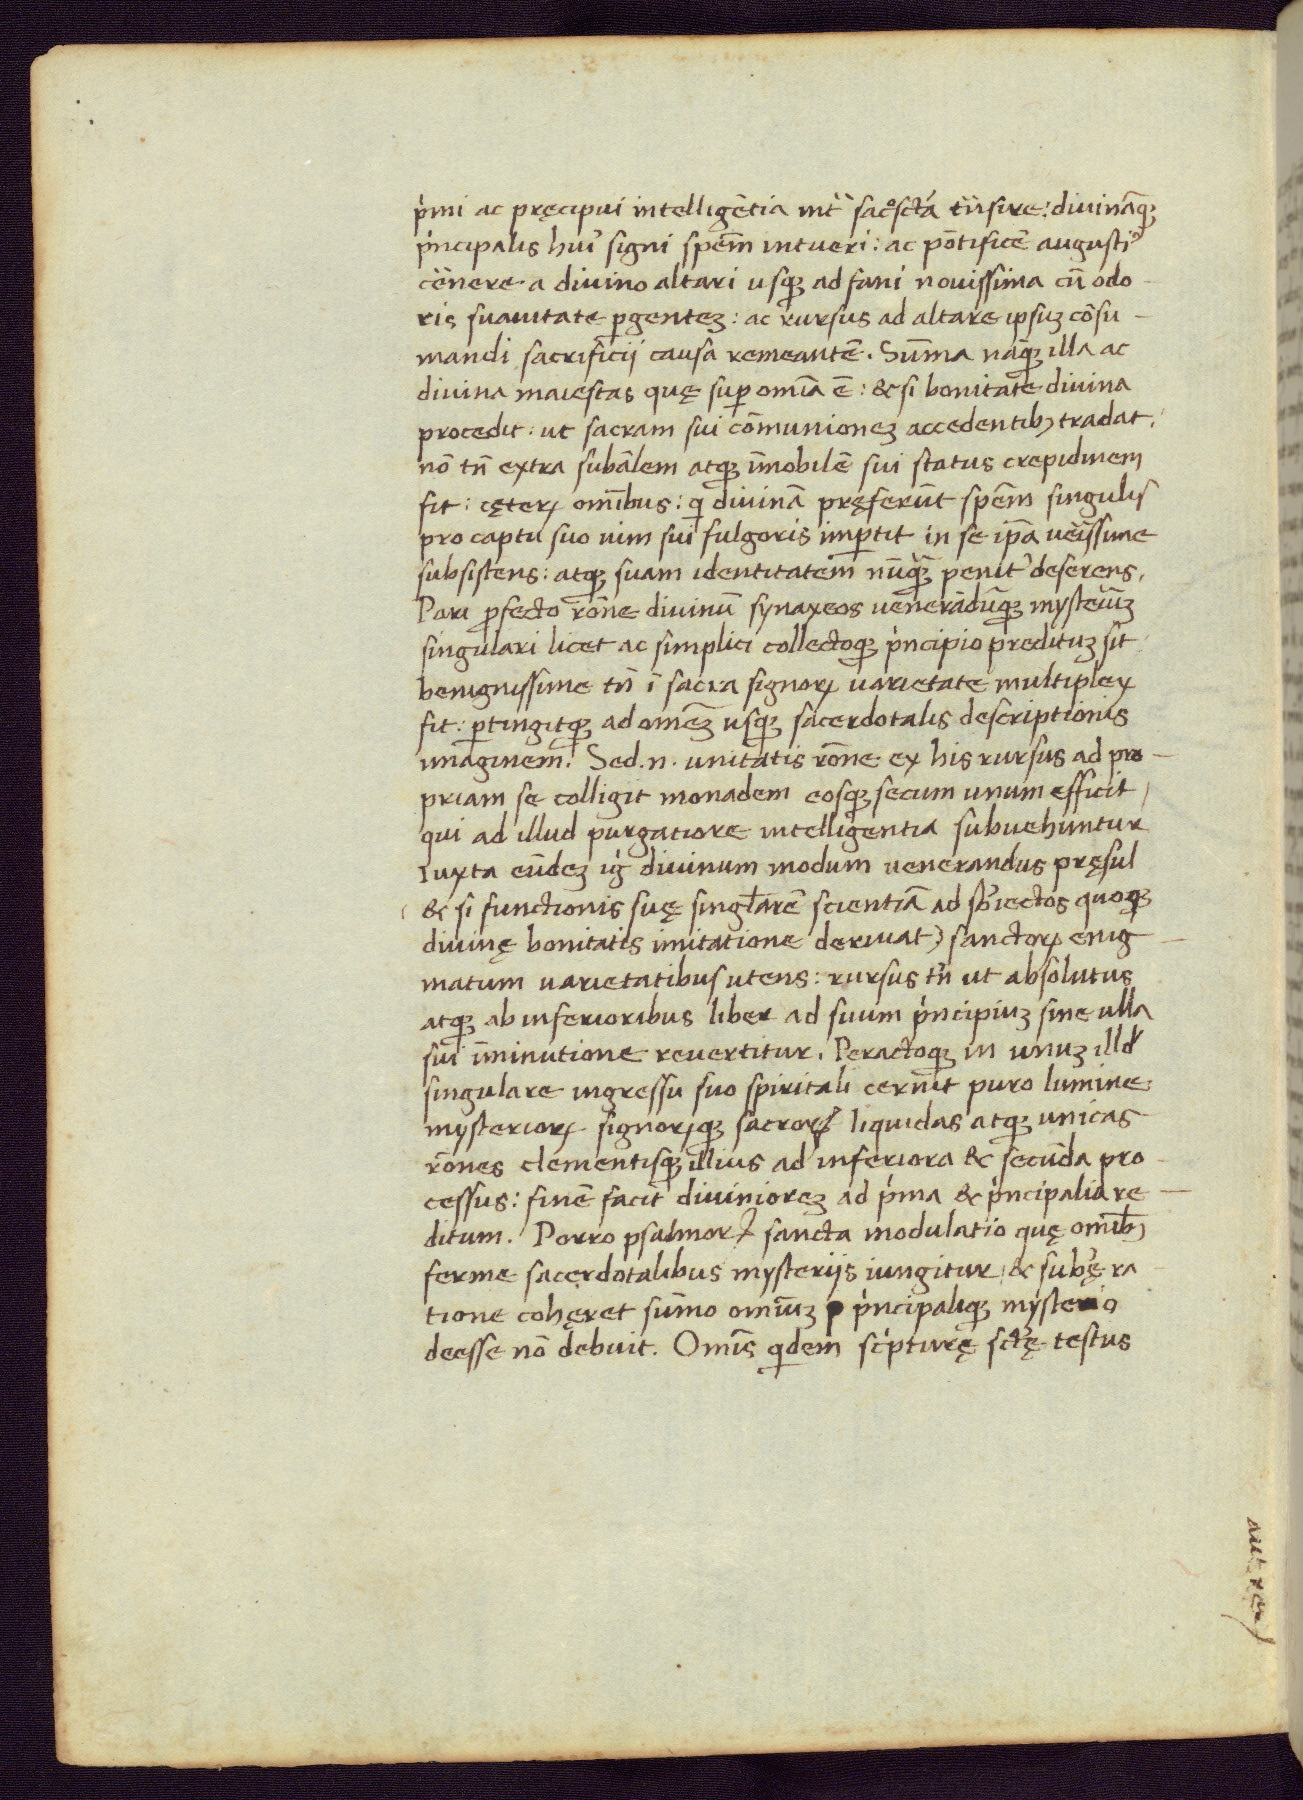 p̓mi ac pręcipui intelligẽtia int̃ sac̊scṫa t̃nsire: diuinãqꝫ
p̓ncipalis hui᷒ signi spẽm intueri: ac põtificẽ augusti᷒
c̃enere a diuino altari usqꝫ ad fani nouissima cũ odo-
ris suauitate ꝑgenteꝫ: ac rursus ad altare ipsuꝫ cõsu-
mandi sacrificij causa remeantẽ. Sũma nãqꝫ illa ac
diuina maiestas quę suꝑ omĩa ẽ: & si bonitate diuina
procedit: ut sacram sui cõmunioneꝫ accedentibꝫ tradat,
nõ tñ extra subãlem atqꝫ ĩmobilẽ sui status crepidinem
fit: cęteꝝ omĩbus: qͥ diuinã pręferũt spẽm singulis
pro captu suo uim sui fulgoris imꝑtit in se ip̃a uẽissime
subsistens: atqꝫ suam identitatem nũqꝫ penit᷒ deserens.
Pari ꝓfecto rõne diuinũ synaxeos uenerãdũqꝫ mysteriũꝫ
singulari licet ac simplici collectoqꝫ p̓ncipio predituꝫ sit
benignissime tñ ĩ sacra signoꝝ uarietate multiplex
fit: ꝑtingitqꝫ ad omẽꝫ usqꝫ sacerdotalis descriptionis
imaginem. Sed .n. unitatis rõne ex his rursus ad pro-
priam se colligit monadem eosqꝫ secum unum efficit,
qui ad illud purgatiore intelligentia subuehuntur
Iuxta eũdeꝫ ig̓ diuinum modum uenerandus pręsul
& si functionis suę singl̃arẽ scientiã ad sb̓iectos quoqꝫ
diuinę bonitatis imitatione deriuat) sanctoꝝ enig-
matum uarietatibus utens: rursus tñ ut absolutus
atqꝫ ab inferioribus liber ad suum p̓ncipiuꝫ sine ulla
sui ĩminutione reuertitur. Peractoqꝫ in unuꝫ illd̓
singulare ingressu suo spiritali cernit puro lumine
mysterioꝝ signoꝝqꝫ sacroꝝ liquidas atqꝫ unicas
rõnes clementisqꝫ illius ad inferiora & secũda pro-
cessus: finẽ facit diuinioreꝫ ad p̓ma & p̓ncipalia re-
ditum. Porro psalmoꝝ sancta modulatio quę omĩbꝫ
ferme sacerdotalibus mysterijs iungitur, & sub᷒ę ra-
tione cohęret sũmo omĩuꝫ p̓ncipaliqꝫ mysterio
deesse nõ debuit. Omĩs qͥdem sc̓pturę sct̃ę testus